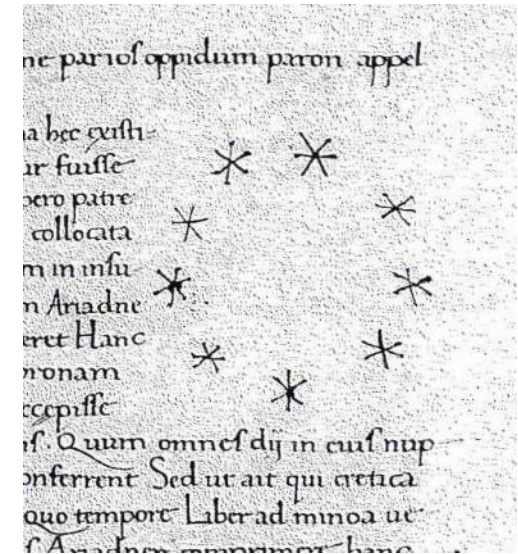 ne parios oppidum paron appel
a hec existi
ur fuisse
bero patre
collocata
m in insu
n Ariadne
eret Hanc
oronam
ccepisse
is. Quum omnes dij in eius nup
onferrent Sed ut ait qui cretica
quo tempore Liber ad minoa ue
s Ariadnen comprimeret hanc